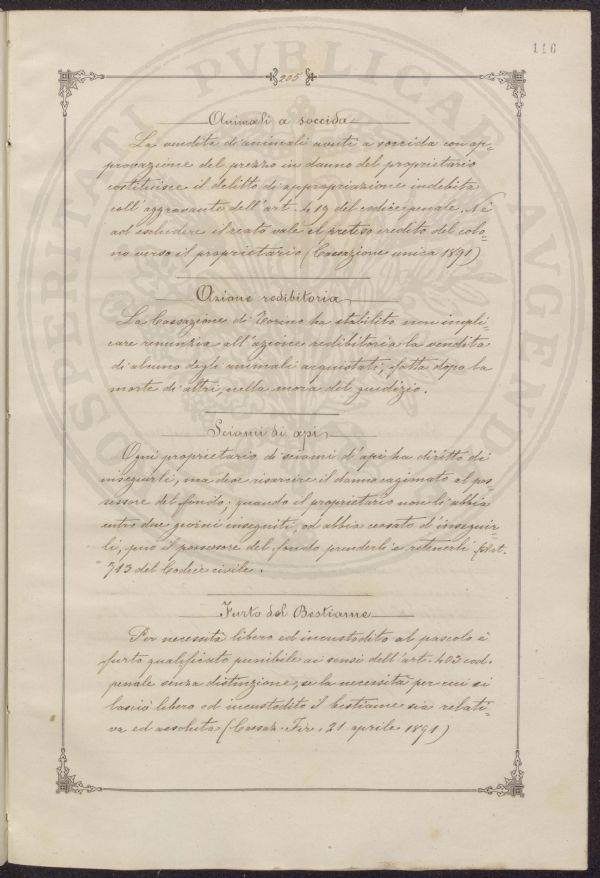 116
205
Animali a soccida
La vendita d'animali avuti a soccida con ap=
provazione del prezzo in danno del proprietario
costituisce il delitto di appropriazione indebita
coll'aggravante dell'art. 419 del codice penale. Nè
ad escludere il reato vale il preteso credito del colo=
no verso il proprietario (Cassazione unica 1891)
Azione redibitoria
La Cassazione di Torino ha stabilito non impli=
care renunzia all'azione redibitoria la vendita
di alcuno degli animali acquistati, fatta dopo la
morte di altri, nella mora del giudizio.
Sciami di api
Ogni proprietario di sciami d'api ha diritto di
inseguirli, ma deve risarcire il danno cagionato al pos=
sessore del fondo; quando il proprietario non li abbia
entro due giorni inseguiti, od abbia cessato d'inseguir=
li, può il possessore del fondo prenderli e ritenerli (Art.
713 del Codice civile.
Furto del Bestiame
Per necessità libero ed incustodito al pascolo è
furto qualificato punibile ai sensi dell'art. 403 cod.
penale senza distinzione, se la necessità per cui si
lasciò libero ed incustodito il bestiame sia relati=
va ed assoluta (Cassaz. Fir. 21 aprile 1891)
PROSPERITATI PVBLICAE AVGENDAE